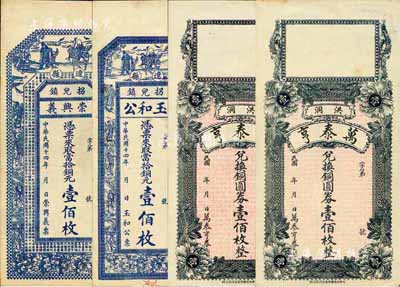 縣
拐兒鎮
義興崇
字第
號
憑票來取當拾銅元壹佰枚
中華民國十四年 月 日崇興義票
縣遼
拐兒鎮
公和玉
字第
號
憑票來取當拾銅元壹佰枚
中華民國十四年 月 日玉和公票
洪洞
亨泰
兌換銅圓券壹佰枚整
民國 年 月 日萬泰亨券
洪洞
亨泰萬
字第
號
兌換銅圓券壹佰枚整
民國 年 月 日萬泰亨券